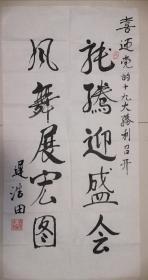 喜迎党的十九大胜利召开
龙腾迎盛会
风舞展宏图
迟浩田